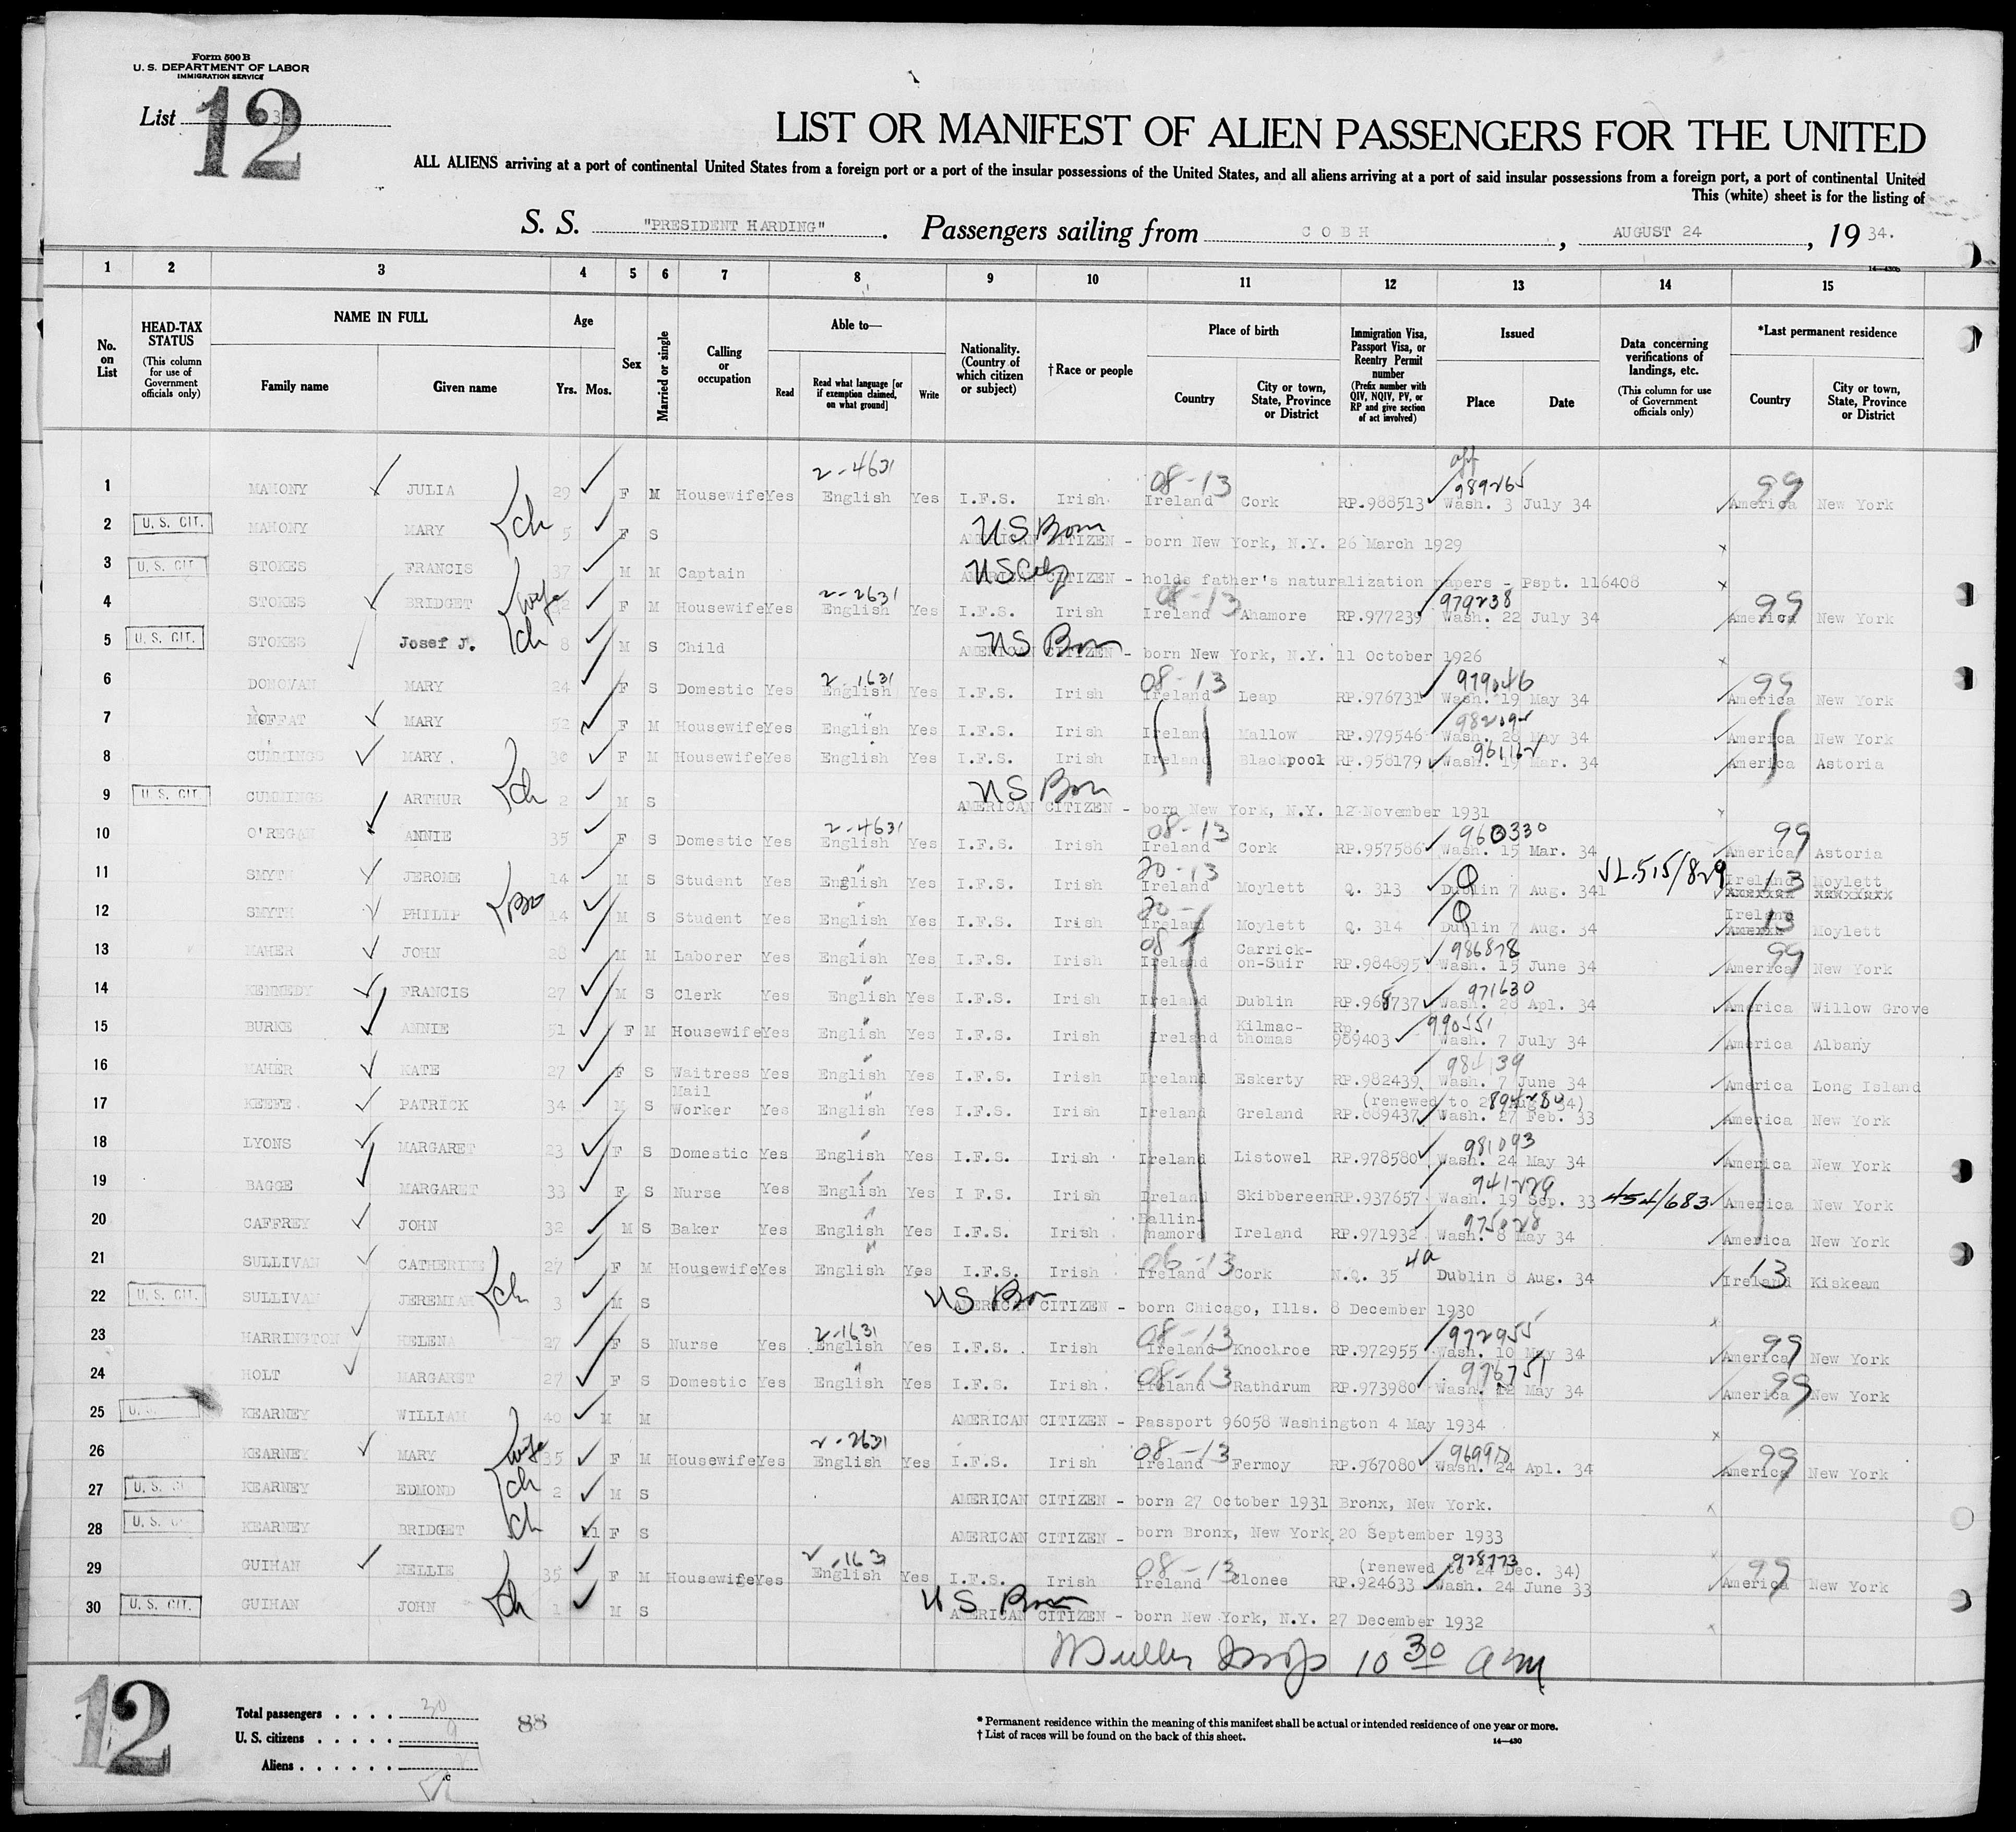 Form 500 B
U. S. DEPARTMENT OF LABOR
IMMIGRATION SERVICE
List 3
12
LIST OR MANIFEST OF ALIEN PASSENGERS FOR THE UNITED
ALL ALIENS arriving at a port of continental United States from a foreign port or a port of the insular possessions of the United States, and all aliens arriving at a port of said insular possessions from a foreign port, a port of continental United
This (white) sheet is for the listing of
S. S. "PRESIDENT HARDING". Passengers sailing from COBH, AUGUST 24, 1934.
14—430b
1 2 3 4 5 6 7 8 9 10 11 12 13 14 15
No. on List
HEAD-TAX STATUS (This column for use of Government officials only)
NAME IN FULL Family name Given name
Age Yrs. Mos.
Sex
Married or single
Calling or occupation
Able to— Read Read what language [or if exemption claimed, on what ground] Write
Nationality. (Country of which citizen or subject)
†Race or people
Place of birth Country City or town, State, Province or District
Immigration Visa, Passport Visa, or Reentry Permit number (Prefix number with QIV, NQIV, PV, or RP and give section of act involved)
Issued Place Date
Data concerning verifications of landings, etc. (This column for use of Government officials only)
*Last permanent residence Country City or town, State, Province or District
2-4631 08-13 989265 99
1 MAHONY JULIA 29 F M Housewife Yes English Yes I.F.S. Irish Ireland Cork RP.988513 Wash. 3 July 34 America New York
2 U. S. CIT. MAHONY MARY ch 5 F S US Born AMERICAN CITIZEN - born New York, N.Y. 26 March 1929 x
3 U. S. CIT. STOKES FRANCIS 37 M M Captain AMERICAN CITIZEN - holds father's naturalization papers - Pspt. 116408 x
2-2631 08-13 979238 99
4 STOKES BRIDGET wife F M Housewife Yes English Yes I.F.S. Irish Ireland Ahamore RP.977239 Wash. 22 July 34 America New York
5 U. S. CIT. STOKES Josef J. ch 8 M S Child US Born AMERICAN CITIZEN - born New York, N.Y. 11 October 1926 x
2-1631 08-13 979046 99
6 DONOVAN MARY 24 F S Domestic Yes English Yes I.F.S. Irish Ireland Leap RP.976731 Wash. 19 May 34 America New York
7 MOFFAT MARY 52 F M Housewife Yes English Yes I.F.S. Irish Ireland Mallow RP.979546 Wash. 28 May 34 America New York
8 CUMMINGS MARY F M Housewife Yes English Yes I.F.S. Irish Ireland Blackpool RP.958179 Wash. 19 Mar. 34 America Astoria
9 U. S. CIT. CUMMINGS ARTHUR ch 2 M S US Born AMERICAN CITIZEN - born New York, N.Y. 12 November 1931
2-4631 08-13 960330 99
10 O'REGAN ANNIE 35 F S Domestic Yes English Yes I.F.S. Irish Ireland Cork RP.957586 Wash. 15 Mar. 34 America Astoria
20-13 Q VL.515/829 13
11 SMYTH JEROME 14 M S Student Yes English Yes I.F.S. Irish Ireland Moylett Q. 313 Dublin 7 Aug. 34 Ireland Moylett
20- Q 13
12 SMYTH PHILIP Bro 14 M S Student Yes English Yes I.F.S. Irish Ireland Moylett Q. 314 Dublin 7 Aug. 34 Ireland Moylett
08- 986878 99
13 MAHER JOHN 28 M M Laborer Yes English Yes I.F.S. Irish Ireland Carrick-on-Suir RP.984895 Wash. 15 June 34 America New York
971630
14 KENNEDY FRANCIS 27 M S Clerk Yes English Yes I.F.S. Irish Ireland Dublin RP.968737 Wash. 28 Apl. 34 America Willow Grove
990551
15 BURKE ANNIE 51 F M Housewife Yes English Yes I.F.S. Irish Ireland Kilmac-thomas Rp. 989403 Wash. 7 July 34 America Albany
984139
16 MAHER KATE 27 F S Waitress Yes English Yes I.F.S. Irish Ireland Eskerty RP.982439 Wash. 7 June 34 America Long Island
17 KEEFE PATRICK 34 M S Mail Worker Yes English Yes I.F.S. Irish Ireland Greland RP.889437 Wash. 27 Feb. 33 America New York
981093
18 LYONS MARGARET 23 F S Domestic Yes English Yes I.F.S. Irish Ireland Listowel RP.978580 Wash. 24 May 34 America New York
941229
19 BAGGE MARGARET 33 F S Nurse Yes English Yes I F.S. Irish Ireland Skibbereen RP.937657 Wash. 19 Sep. 33 454/683 America New York
975028
20 CAFFREY JOHN 32 M S Baker Yes English Yes I.F.S. Irish Ballin-namore Ireland RP.971932 Wash. 8 May 34 America New York
06-13 4a 13
21 SULLIVAN CATHERINE 27 F M Housewife Yes English Yes I.F.S. Irish Ireland Cork N.Q. 35 Dublin 8 Aug. 34 Ireland Kiskeam
22 U. S. CIT. SULLIVAN JEREMIAH ch 3 M S US Born AMERICAN CITIZEN - born Chicago, Ills. 8 December 1930
2-1631 08-13 972955 99
23 HARRINGTON HELENA 27 F S Nurse Yes English Yes I.F.S. Irish Ireland Knockroe RP.972955 Wash. 10 May 34 America New York
08-13 976751 99
24 HOLT MARGARET 27 F S Domestic Yes English Yes I.F.S. Irish Ireland Rathdrum RP.973980 Wash. 12 May 34 America New York
25 U. S. KEARNEY WILLIAM 40 M M AMERICAN CITIZEN - Passport 96058 Washington 4 May 1934 x
2-2631 08-13 99
26 KEARNEY MARY wife 35 F M Housewife Yes English Yes I.F.S. Irish Ireland Fermoy RP.967080 Wash. 24 Apl. 34 America New York
27 U. S. CI KEARNEY EDMOND ch 2 M S AMERICAN CITIZEN - born 27 October 1931 Bronx, New York.
28 U. S. KEARNEY BRIDGET ch 11 F S AMERICAN CITIZEN - born Bronx, New York 20 September 1933
2-1631 08-13 (renewed to 24 Dec. 34) 928773 99
29 GUIHAN NELLIE 35 F M Housewife Yes English Yes I.F.S. Irish Ireland Clonee RP.924633 Wash. 24 June 33 America New York
30 U. S. CIT. GUIHAN JOHN ch 1 M S US Born AMERICAN CITIZEN - born New York, N.Y. 27 December 1932
10 30 am
12
Total passengers . . . . 30
U. S. citizens . . . . . 9
Aliens . . . . . .
88
* Permanent residence within the meaning of this manifest shall be actual or intended residence of one year or more.
† List of races will be found on the back of this sheet.
14—430